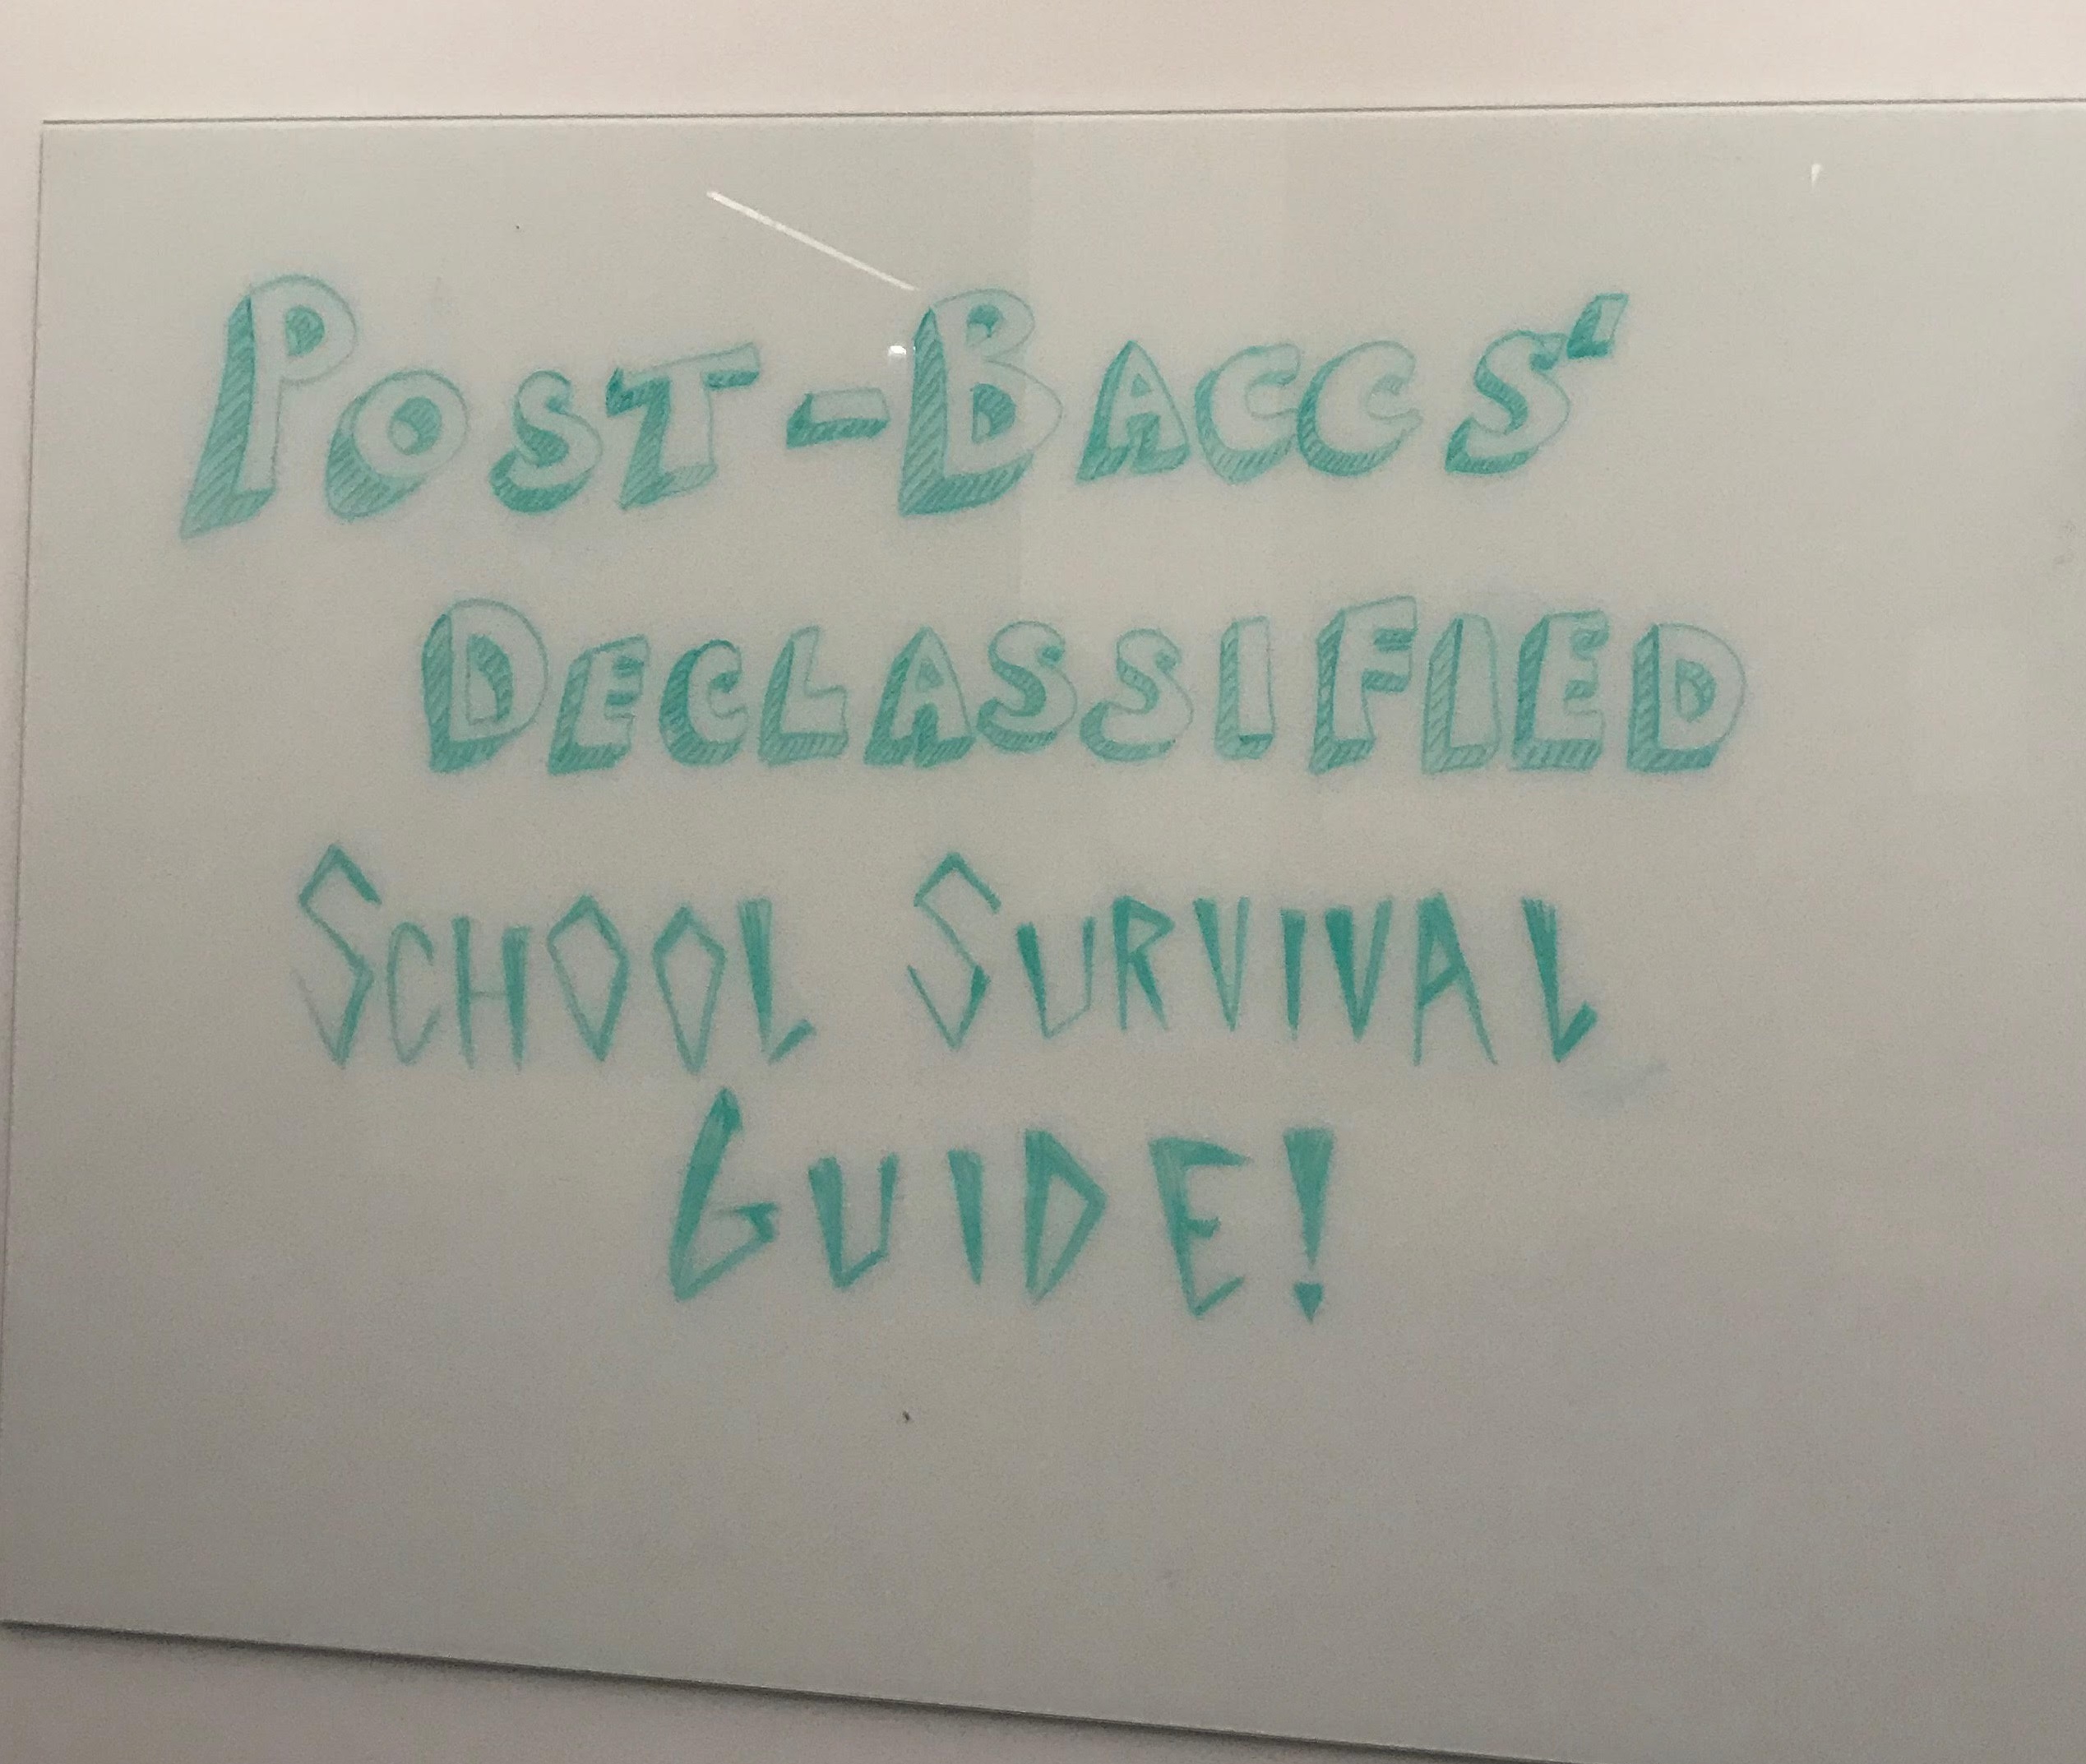 POST-BACCS'
DECLASSIFIED
SCHOOL SURVIVAL
GUIDE!